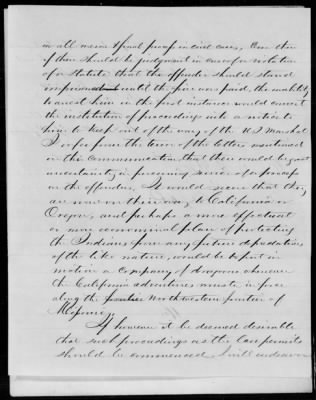 in all mesne & final process in civil cases, Even tho
if there should be judgment in case for violation
of a statute that the offender should stand
imprisoned until the fine was paid, the inability
to arrest him in the first instance would convert
the institution of proceedings into a notice to
him to keep out of the way of the U.S. Marshal
I infer from the tenor of the letters mentioned
in this communication, that there would be great
uncertainty in procuring service of a process
on the offenders. It would seem that they
are now on their way to California or
Oregon, and perhaps a more effectual
or more economical plan of protecting
the Indians from any future depredations
of the like nature, would be to put in
motion a company of dragoons whenever
the California adventurers muster in force
along the Northwestern frontier of
Missouri.
If however it be deemed desirable
that such proceedings as the law permits
should be commenced I will endeavor